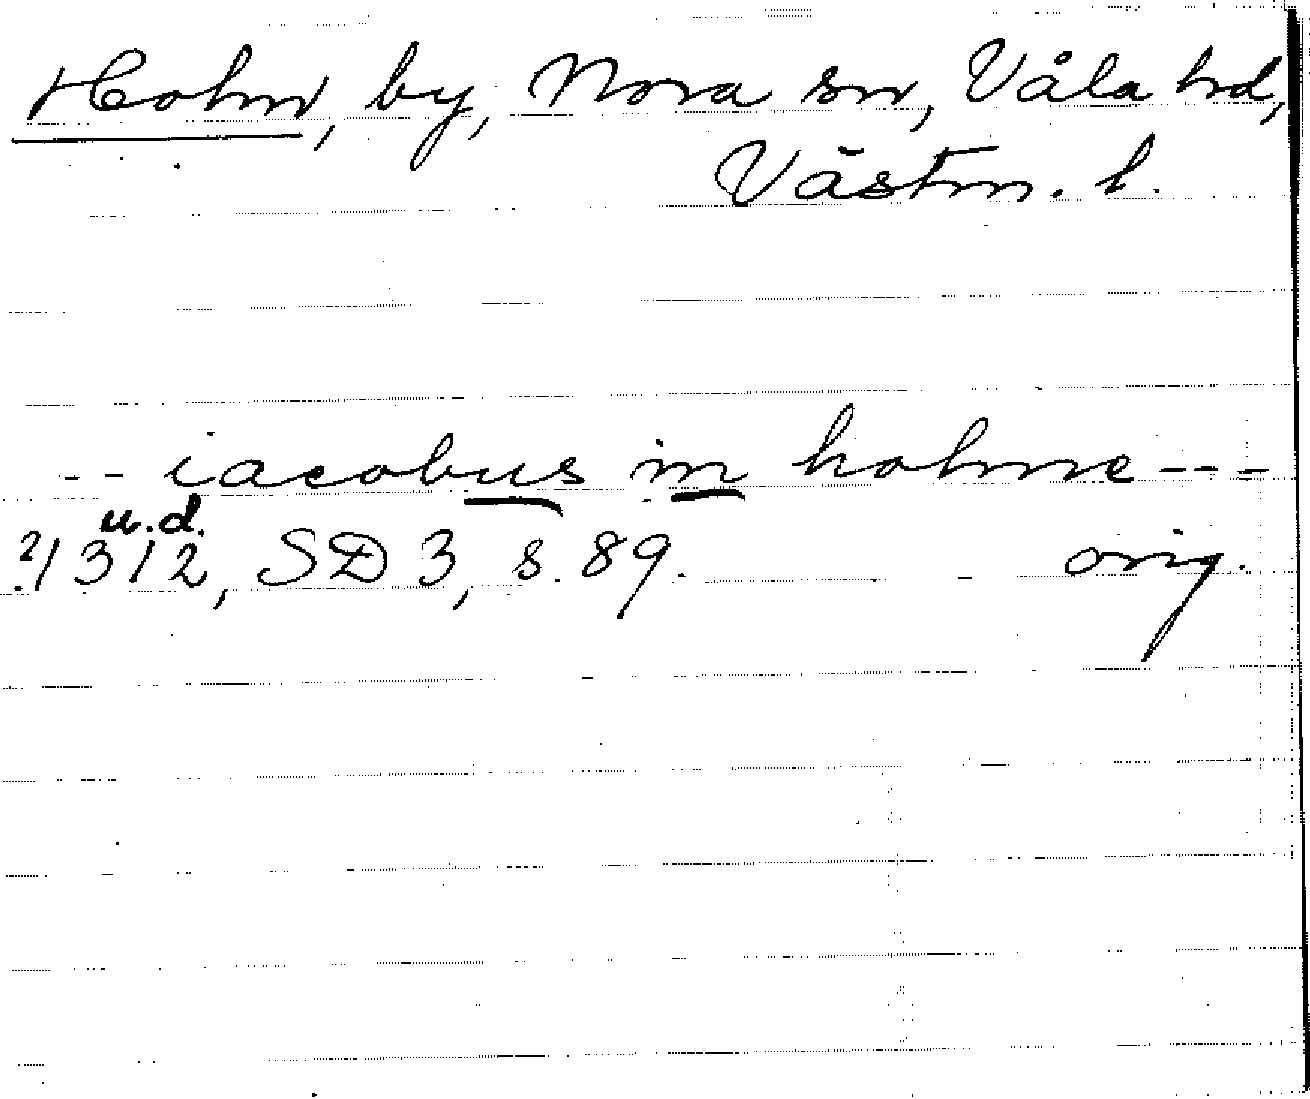 Holm, by, Nora sn, Våla hd,
Västm. l.
-- iacobus in holme ---
u.d.
?/1312, SD 3, s. 89. orig.